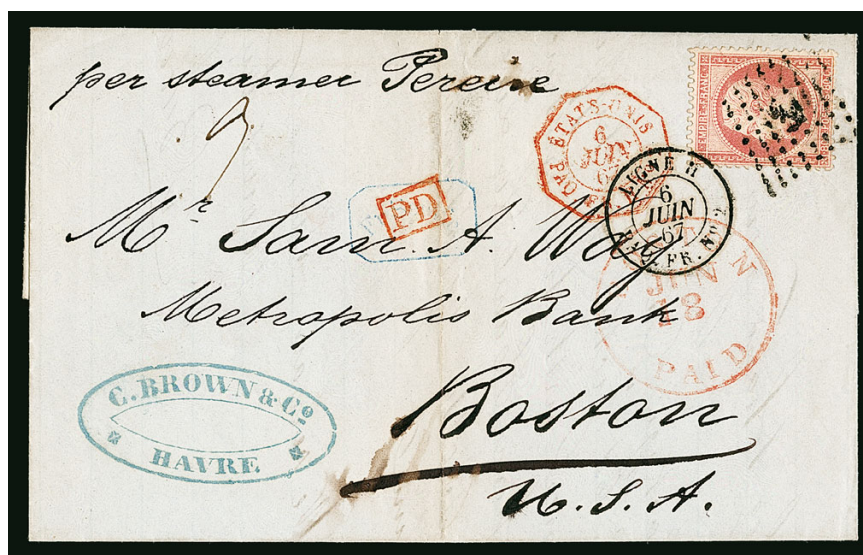 per steamer Pereire
EMPIRE FRANC
ÉTATS-UNIS
6
JUIN
67
PAQ. FR.
LIGNE H
6
JUIN
67
PAQ. FR. No 2
PD
Mr Sam. A. Way
Metropolis Bank
BOSTON
JUN
18
PAID
C. BROWN & Co
HAVRE
Boston
U.S.A.